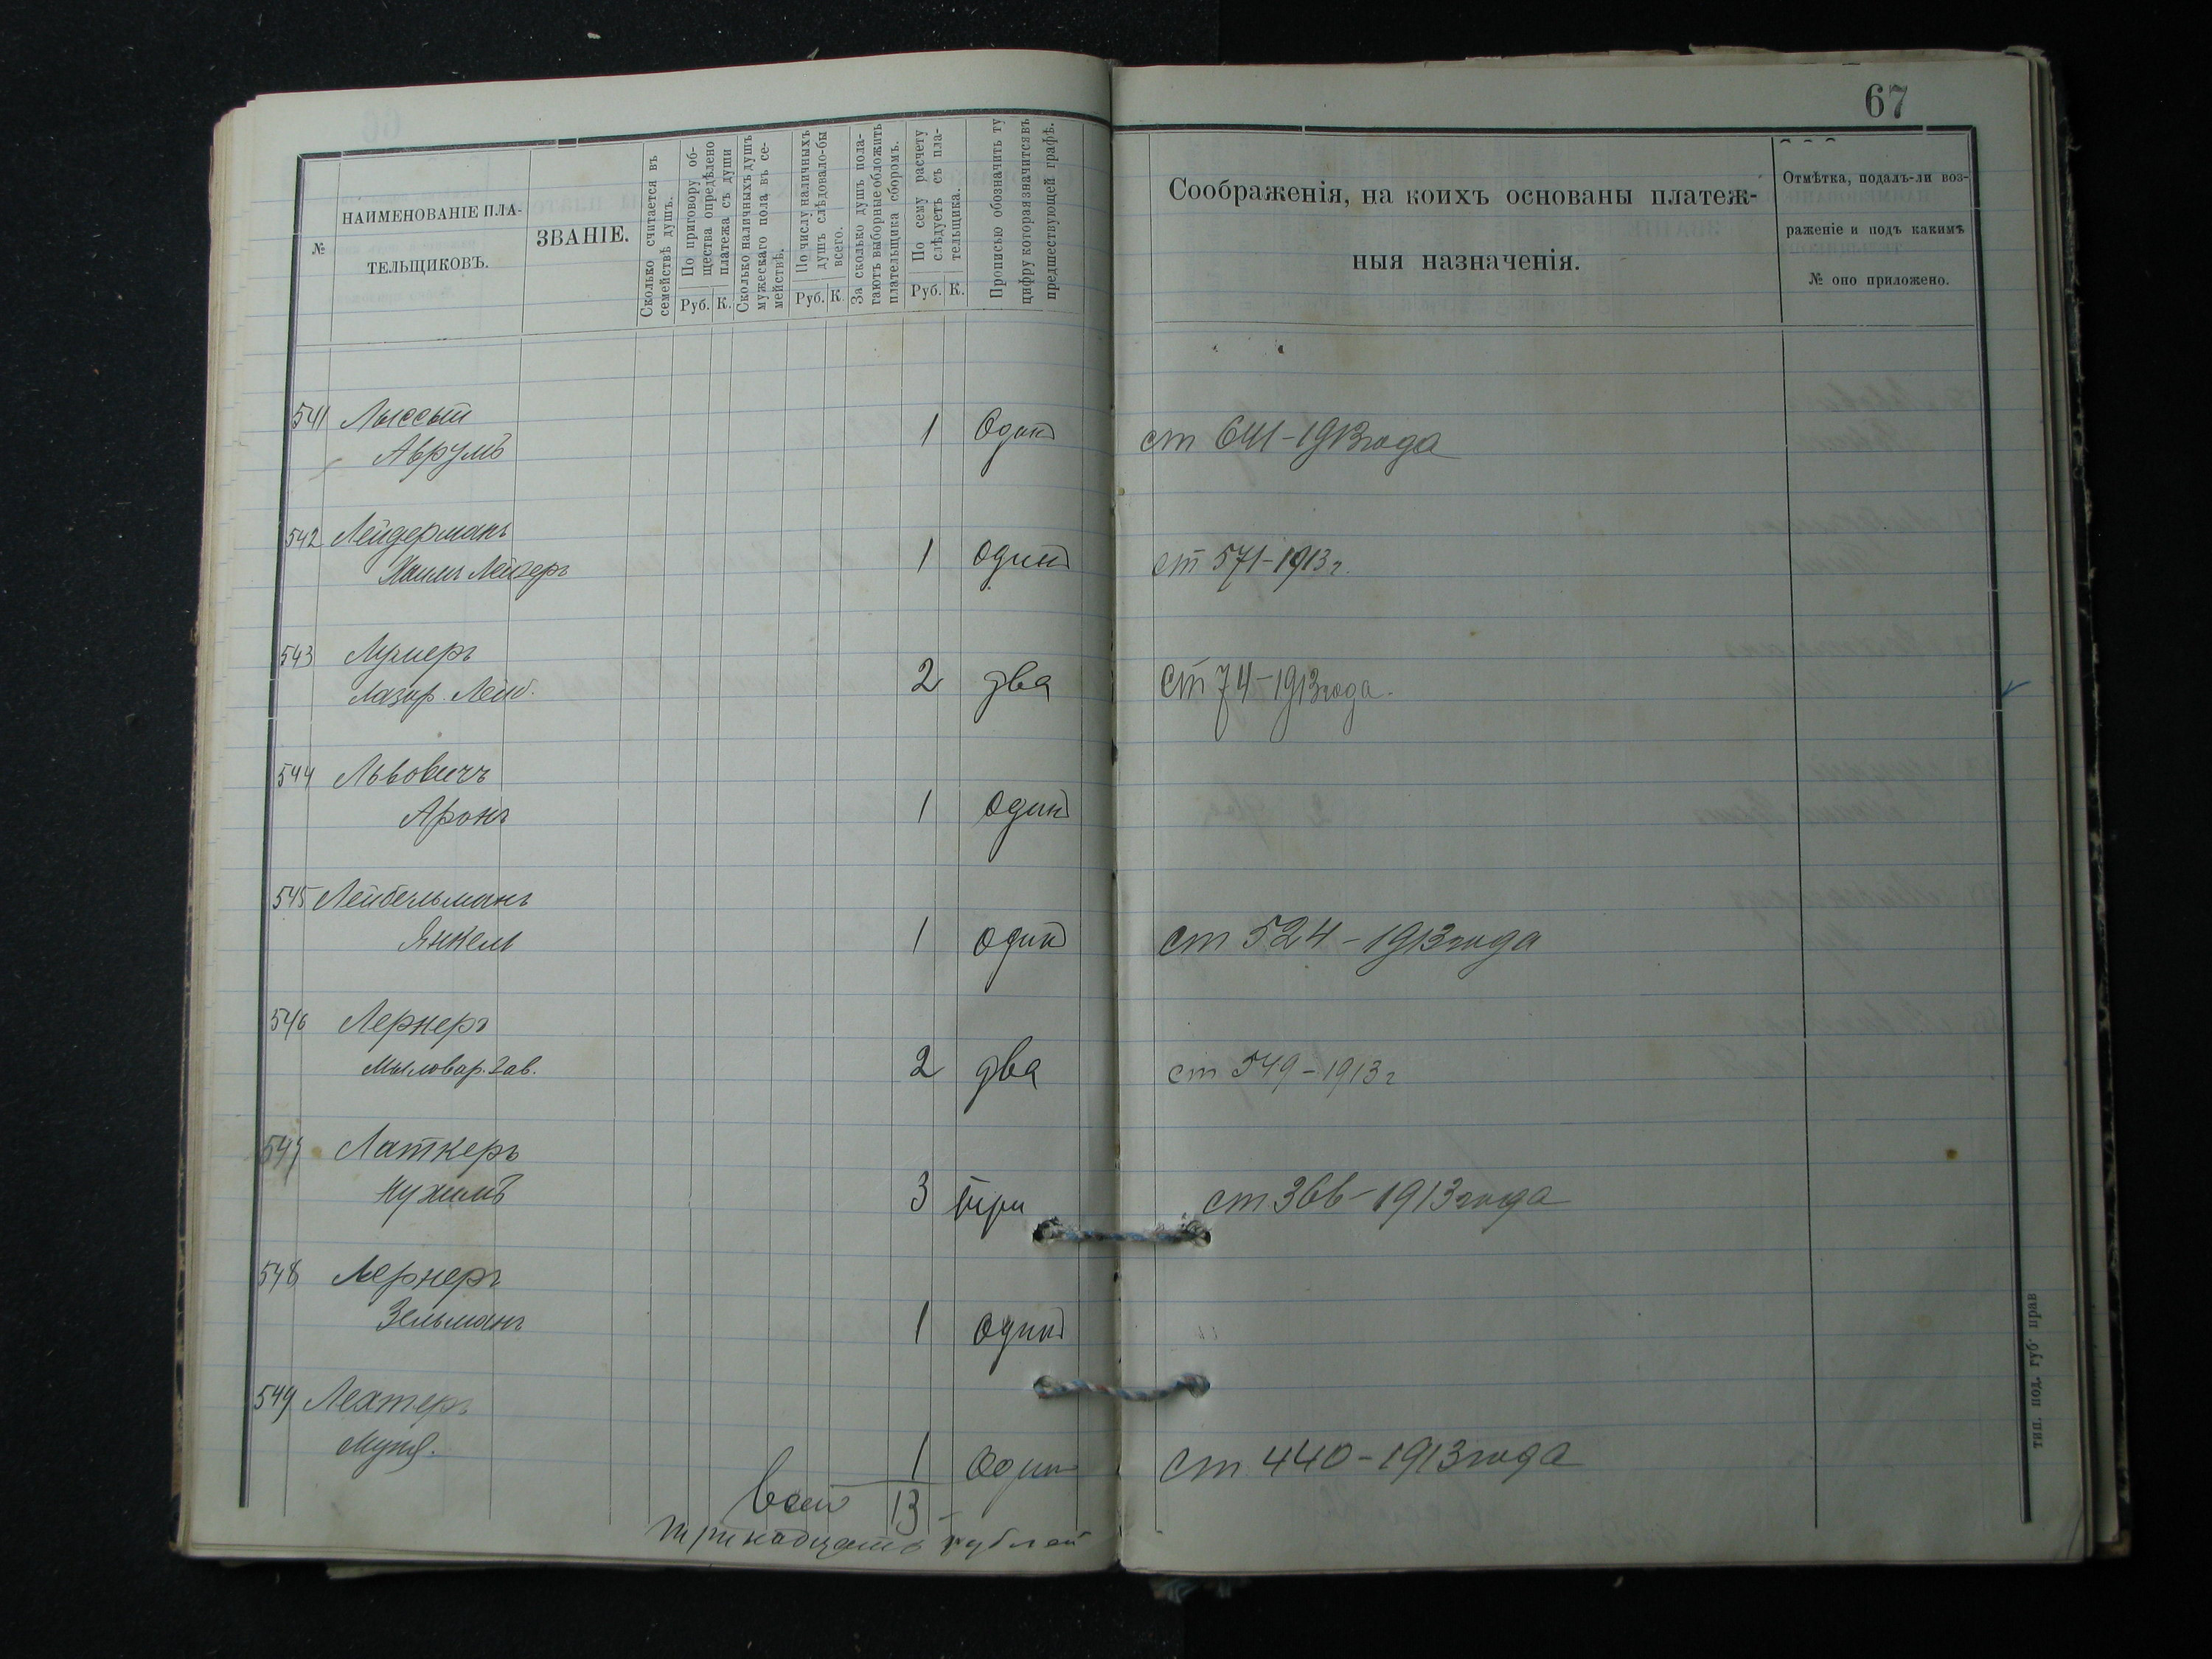 67
№
НАИМЕНОВАНІЕ ПЛА-
ТЕЛЬЩИКОВЪ.
ЗВАНІЕ.
Сколько считается въ
семействѣ душъ.
По приговору об-
щества опредѣлено
платежа съ души
Руб. К.
Сколько наличныхъ душъ
мужескаго пола въ се-
мействѣ.
По числу наличныхъ
душъ слѣдовало-бы
всего.
Руб. К.
За сколько душъ пола-
гаютъ выборные обложить
плательщика сборомъ.
По сему расчету
слѣдуетъ съ пла-
тельщика.
Руб. К.
Прописью обозначить ту
цифру которая значится въ
предшествующей графѣ.
Соображенія, на коихъ основаны платеж-
ныя назначенія.
Отмѣтка, подалъ-ли воз-
раженіе и подъ какимъ
№ оно приложено.
541 Лыссый
Аврумъ 1 Одинъ ст 641-1913 года
542 Лейдерманъ
Хаимъ Лейзеръ 1 один ст 571-1913 г.
543 Лернеръ
Лазар. Лейб. 2 два ст 74-1913 года.
544 Львовичъ
Аронъ 1 один
545 Лейбельманъ
Янкель 1 один ст 524-1913 года
546 Лернеръ
Мыловар. зав. 2 два ст 549-1913 г
547 Латкеръ
Нухимъ 3 три ст 366-1913 года
548 Лернеръ
Зельманъ 1 один
549 Лехтеръ
1 Один ст 440-1913 года
Всего 13 -
тринадцать рублей
тип. под. губ. прав